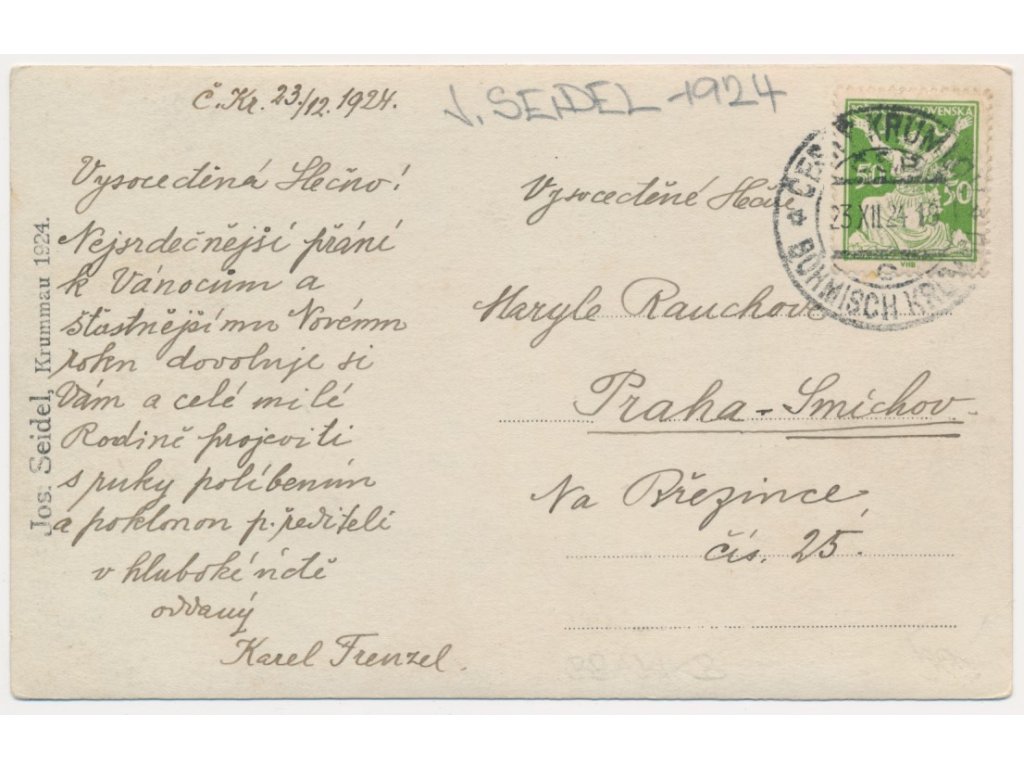 Č. Kr. 23./12. 1924.
J. SEIDEL - 1924
Vysocectěná Slečno!
Nejsrdečnější přání
k Vánocům a
šťastnějšímu Novému
roku dovoluje si
Vám a celé milé
Rodině projeviti
s ruky políbením
a poklonou p. řediteli
v hluboké úctě
oddaný
Karel Frenzel.
Jos. Seidel, Krummau 1924.
Vysocectěné
Maryle Rauchové
Praha - Smíchov
Na Březince
čís. 25.
50 50
ČESKÝ KRUML
23 XII. 24
BÖHMISCH KRU